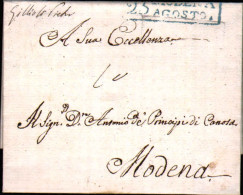 MODENA
25 AGOSTO
A Sua Eccellenza
Il Sig.r D.n Antonio de' Principi di Canosa
Modena